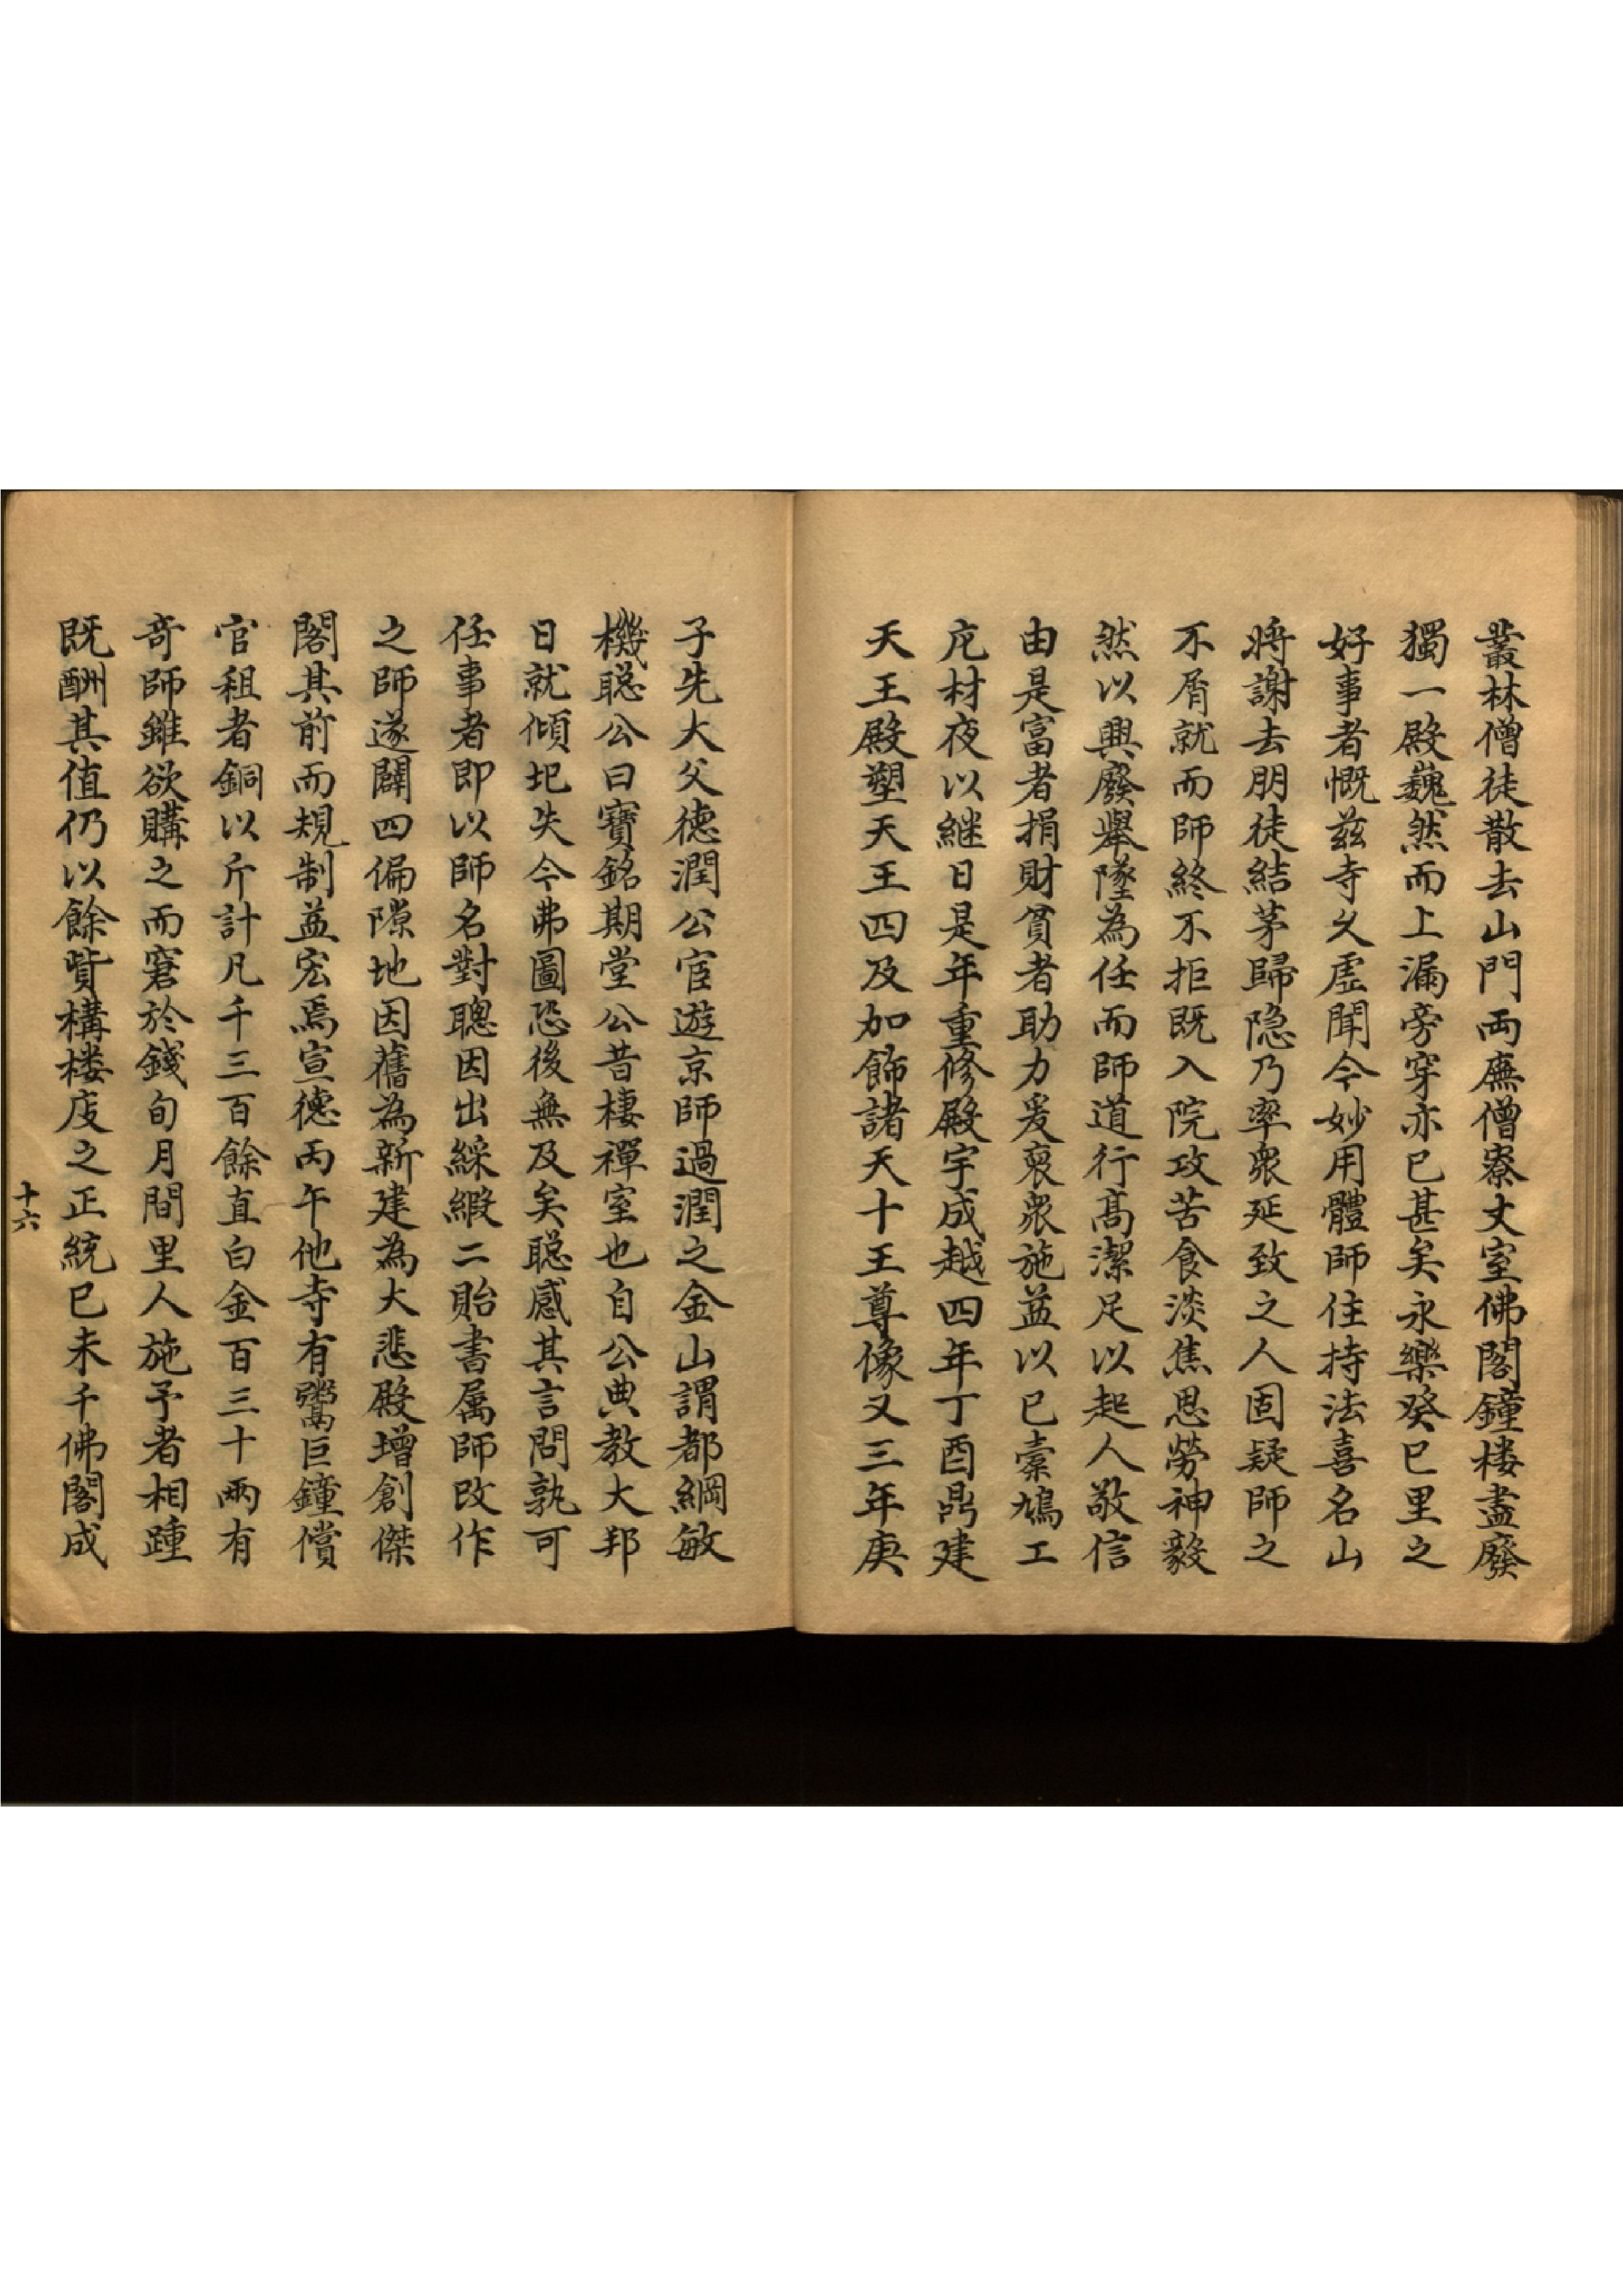 叢林僧徒散去山門両廡僧寮丈室佛閣鐘楼盡廢
獨一殿巍然而上漏旁穿亦已甚矣永樂癸巳里之
好事者慨兹寺久虛聞今妙用體師住持法喜名山
將謝去朋徒結茅歸隐乃率衆延致之人固疑師之
不屑就而師終不拒既入院攻苦食淡焦思勞神毅
然以興廢舉墜為任而師道行髙潔足以起人敬信
由是富者捐財貧者助力爰裒衆施益以已槖鳩工
庀材夜以継日是年重修殿宇成越四年丁酉鼎建
天王殿塑天王四及加飾諸天十王尊像又三年庚
子先大父德潤公宦遊京師過潤之金山謂都綱敏
機聡公曰寶銘期堂公昔棲禪室也自公典教大邦
日就傾圯失今弗圖恐後無及矣聡感其言問孰可
任事者即以師名對聰因出綵緞二貽書属師改作
之師遂闢四偏隙地因舊為新建為大悲殿增創傑
閣其前而規制益宏焉宣德丙午他寺有鬻巨鐘償
官租者銅以斤計凡千三百餘直白金百三十兩有
奇師雖欲購之而窘於錢旬月間里人施予者相踵
既酬其值仍以餘貲構楼庋之正統已未千佛閣成
十六